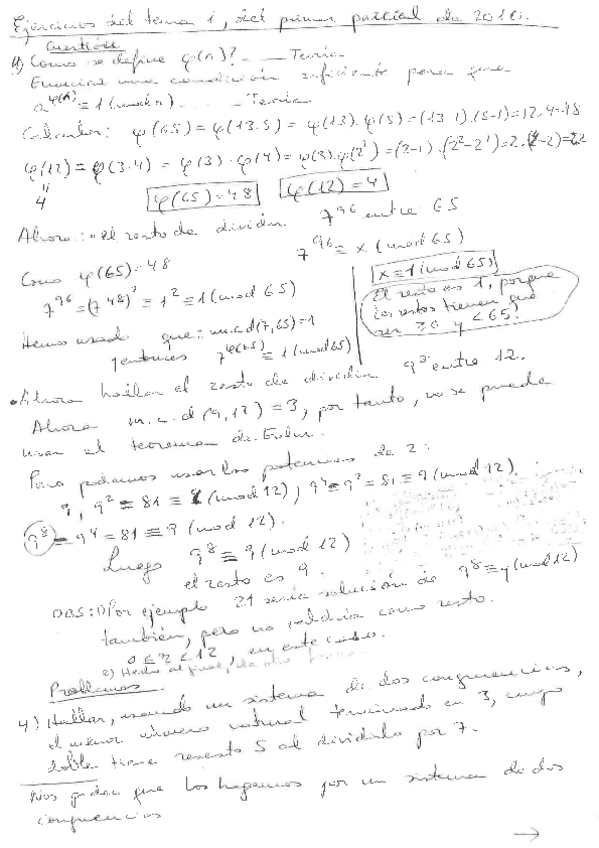 Ejercicios del tema 1, del primer parcial de 2016.
Cuestión
4) Como se define φ(n)? ... Teoría
Enuncia una condición suficiente para que
a^φ(n) ≡ 1 (mod n) ... Teoría
Calcular: φ(65) = φ(13·5) = φ(13)·φ(5) = (13-1)·(5-1) = 12·4 = 48
φ(12) = φ(3·4) = φ(3)·φ(4) = φ(3)·φ(2²) = (3-1)·(2²-2¹) = 2·(4-2) = 2·2
"
4
φ(65) = 48 φ(12) = 4
Ahora: el resto de dividir 7^96 entre 65
7^96 ≡ x (mod 65)
Como φ(65) = 48
7^96 = (7^48)² ≡ 1² ≡ 1 (mod 65)
Hemos usado que: m.c.d(7,65) = 1
entonces 7^φ(65) ≡ 1 (mod 65)
x ≡ 1 (mod 65)
El resto es 1, porque
los restos tienen que
ser ≥ 0 y < 65.
• Ahora hallar el resto de dividir 9^8 entre 12.
Ahora m.c.d(9,12) = 3, por tanto, no se puede
usar el teorema de Euler.
Pero podemos usar las potencias de 2:
9, 9² = 81 ≡ 9 (mod 12), 9^4 ≡ 9² = 81 ≡ 9 (mod 12).
9^8 ≡ 9^4 = 81 ≡ 9 (mod 12).
Luego 9^8 ≡ 9 (mod 12)
el resto es 9.
OBS: 1) Por ejemplo 21 sería solución de 9^8 ≡ y (mod 12)
también, pero no valdría como resto.
0 ≤ r < 12, en este caso.
2) Hecho al final, de otra forma
Problemas.
4) Hallar, usando un sistema de dos congruencias,
el menor número natural terminado en 3, cuyo
doble tiene resto 5 al dividirlo por 7.
Nos piden que los hagamos por un sistema de dos
congruencias
→